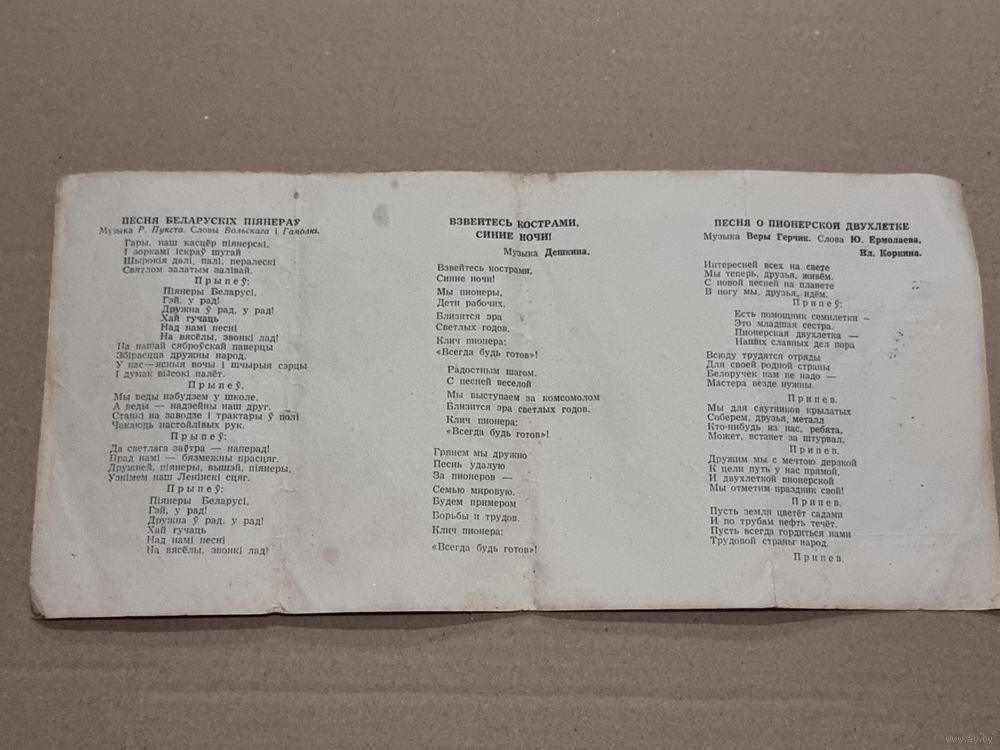 ПЕСНЯ БЕЛАРУСКІХ ПІЯНЕРАЎ
Музыка Р. Пукста. Словы Вольскага і Гамолкі.
Гары, наш касцёр піянерскі,
І зоркамі іскраў шугай
Шырокія далі, палі, пералескі
Святлом залатым залівай.
Прыпеў:
Піянеры Беларусі,
Гэй, у рад!
Дружна ў рад, у рад!
Хай гучаць
Над намі песні
На вясёлы, звонкі лад!
На нашай сяброўскай паверцы
Збіраецца дружны народ.
У нас—ясныя вочы і шчырыя сэрцы
І думак высокі палёт.
Прыпеў.
Мы веды набудзем у школе.
А веды — надзейны наш друг.
Станкі на заводзе і трактары ў полі
Чакаюць настойлівых рук.
Прыпеў:
Да светлага заўтра — наперад!
Прад намі — бязмежны прасцяг.
Дружней, піянеры, вышэй, піянеры,
Узнімем наш Ленінскі сцяг.
Прыпеў:
Піянеры Беларусі,
Гэй, у рад!
Дружна ў рад, у рад!
Хай гучаць
Над намі песні
На вясёлы, звонкі лад!
ВЗВЕЙТЕСЬ КОСТРАМИ,
СИНИЕ НОЧИ!
Музыка Дешкина.
Взвейтесь кострами,
Синие ночи!
Мы пионеры,
Дети рабочих,
Близится эра
Светлых годов.
Клич пионера:
«Всегда будь готов»!
Радостным шагом.
С песней веселой
Мы выступаем за комсомолом
Близится эра светлых годов.
Клич пионера:
«Всегда будь готов»!
Грянем мы дружно
Песнь удалую
За пионеров —
Семью мировую.
Будем примером
Борьбы и трудов.
Клич пионера:
«Всегда будь готов»!
ПЕСНЯ О ПИОНЕРСКОЙ ДВУХЛЕТКЕ
Музыка Веры Герчик. Слова Ю. Ермолаева,
Вл. Коркина.
Интересней всех на свете
Мы теперь, друзья, живём.
С новой песней на планете
В ногу мы, друзья, идём.
Припев:
Есть помощник семилетки -
Это младшая сестра.
Пионерская двухлетка —
Наших славных дел пора
Всюду трудятся отряды
Для своей родной страны
Белоручек нам не надо —
Мастера везде нужны.
Припев.
Мы для спутников крылатых
Соберем, друзья, металл
Кто-нибудь из нас, ребята,
Может, встанет за штурвал.
Припев.
Дружим мы с мечтою дерзкой
К цели путь у нас прямой.
И двухлеткой пионерской
Мы отметим праздник свой!
Припев.
Пусть земля цветёт садами
И по трубам нефть течёт.
Пусть всегда гордиться нами
Трудовой страны народ.
Припев.
www.ay.by